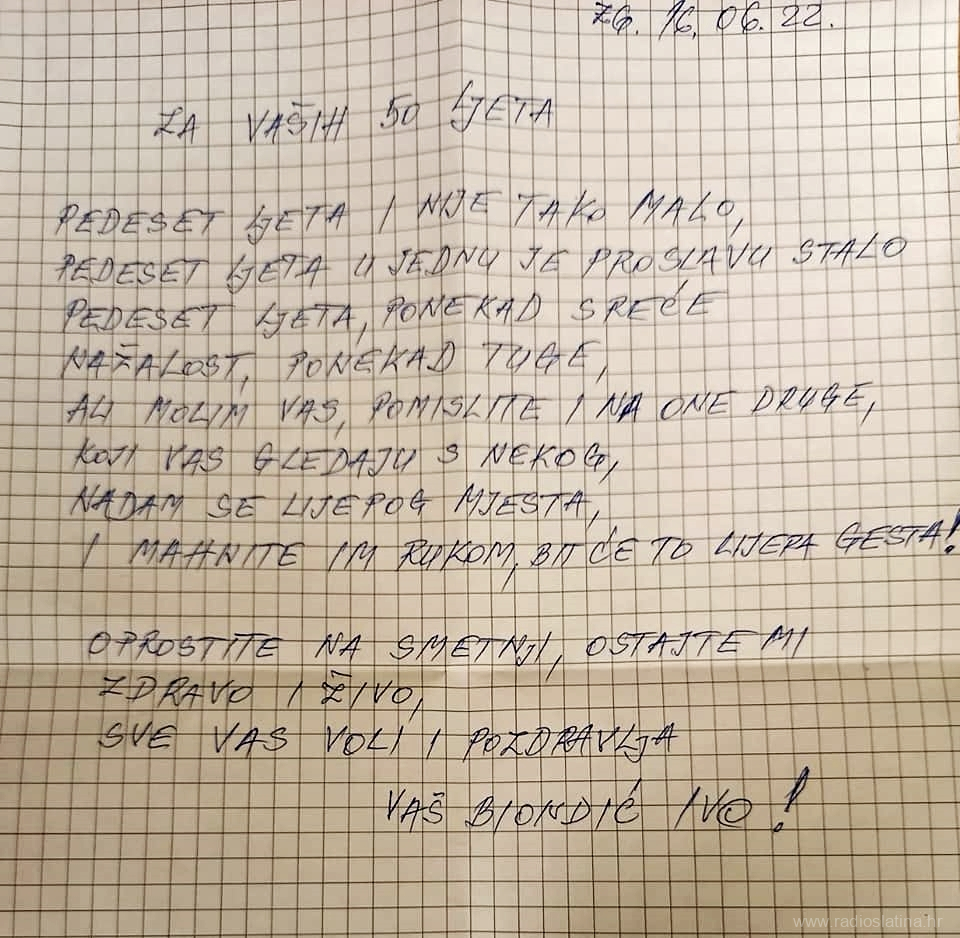 ZG. 16. 06. 22.
ZA VAŠIH 50 LJETA
PEDESET LJETA I NIJE TAKO MALO,
PEDESET LJETA U JEDNU JE PROSLAVU STALO
PEDESET LJETA, PONEKAD SREĆE
NAŽALOST, PONEKAD TUGE,
ALI MOLIM VAS, POMISLITE I NA ONE DRUGE,
KOJI VAS GLEDAJU S NEKOG,
NADAM SE LIJEPOG MJESTA,
I MAHNITE IM RUKOM, BIT ĆE TO LIJEPA GESTA!
OPROSTITE NA SMETNJI, OSTAJTE MI
ZDRAVO I ŽIVO,
SVE VAS VOLI I POZDRAVLJA
VAŠ BIONDIĆ IVO!
www.radioslatina.hr